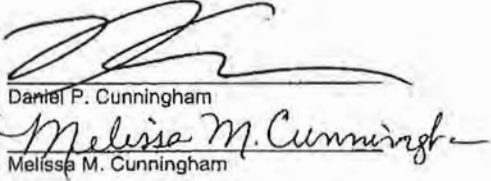 Daniel P. Cunningham
Melissa M. Cunningham
Melissa M. Cunningham